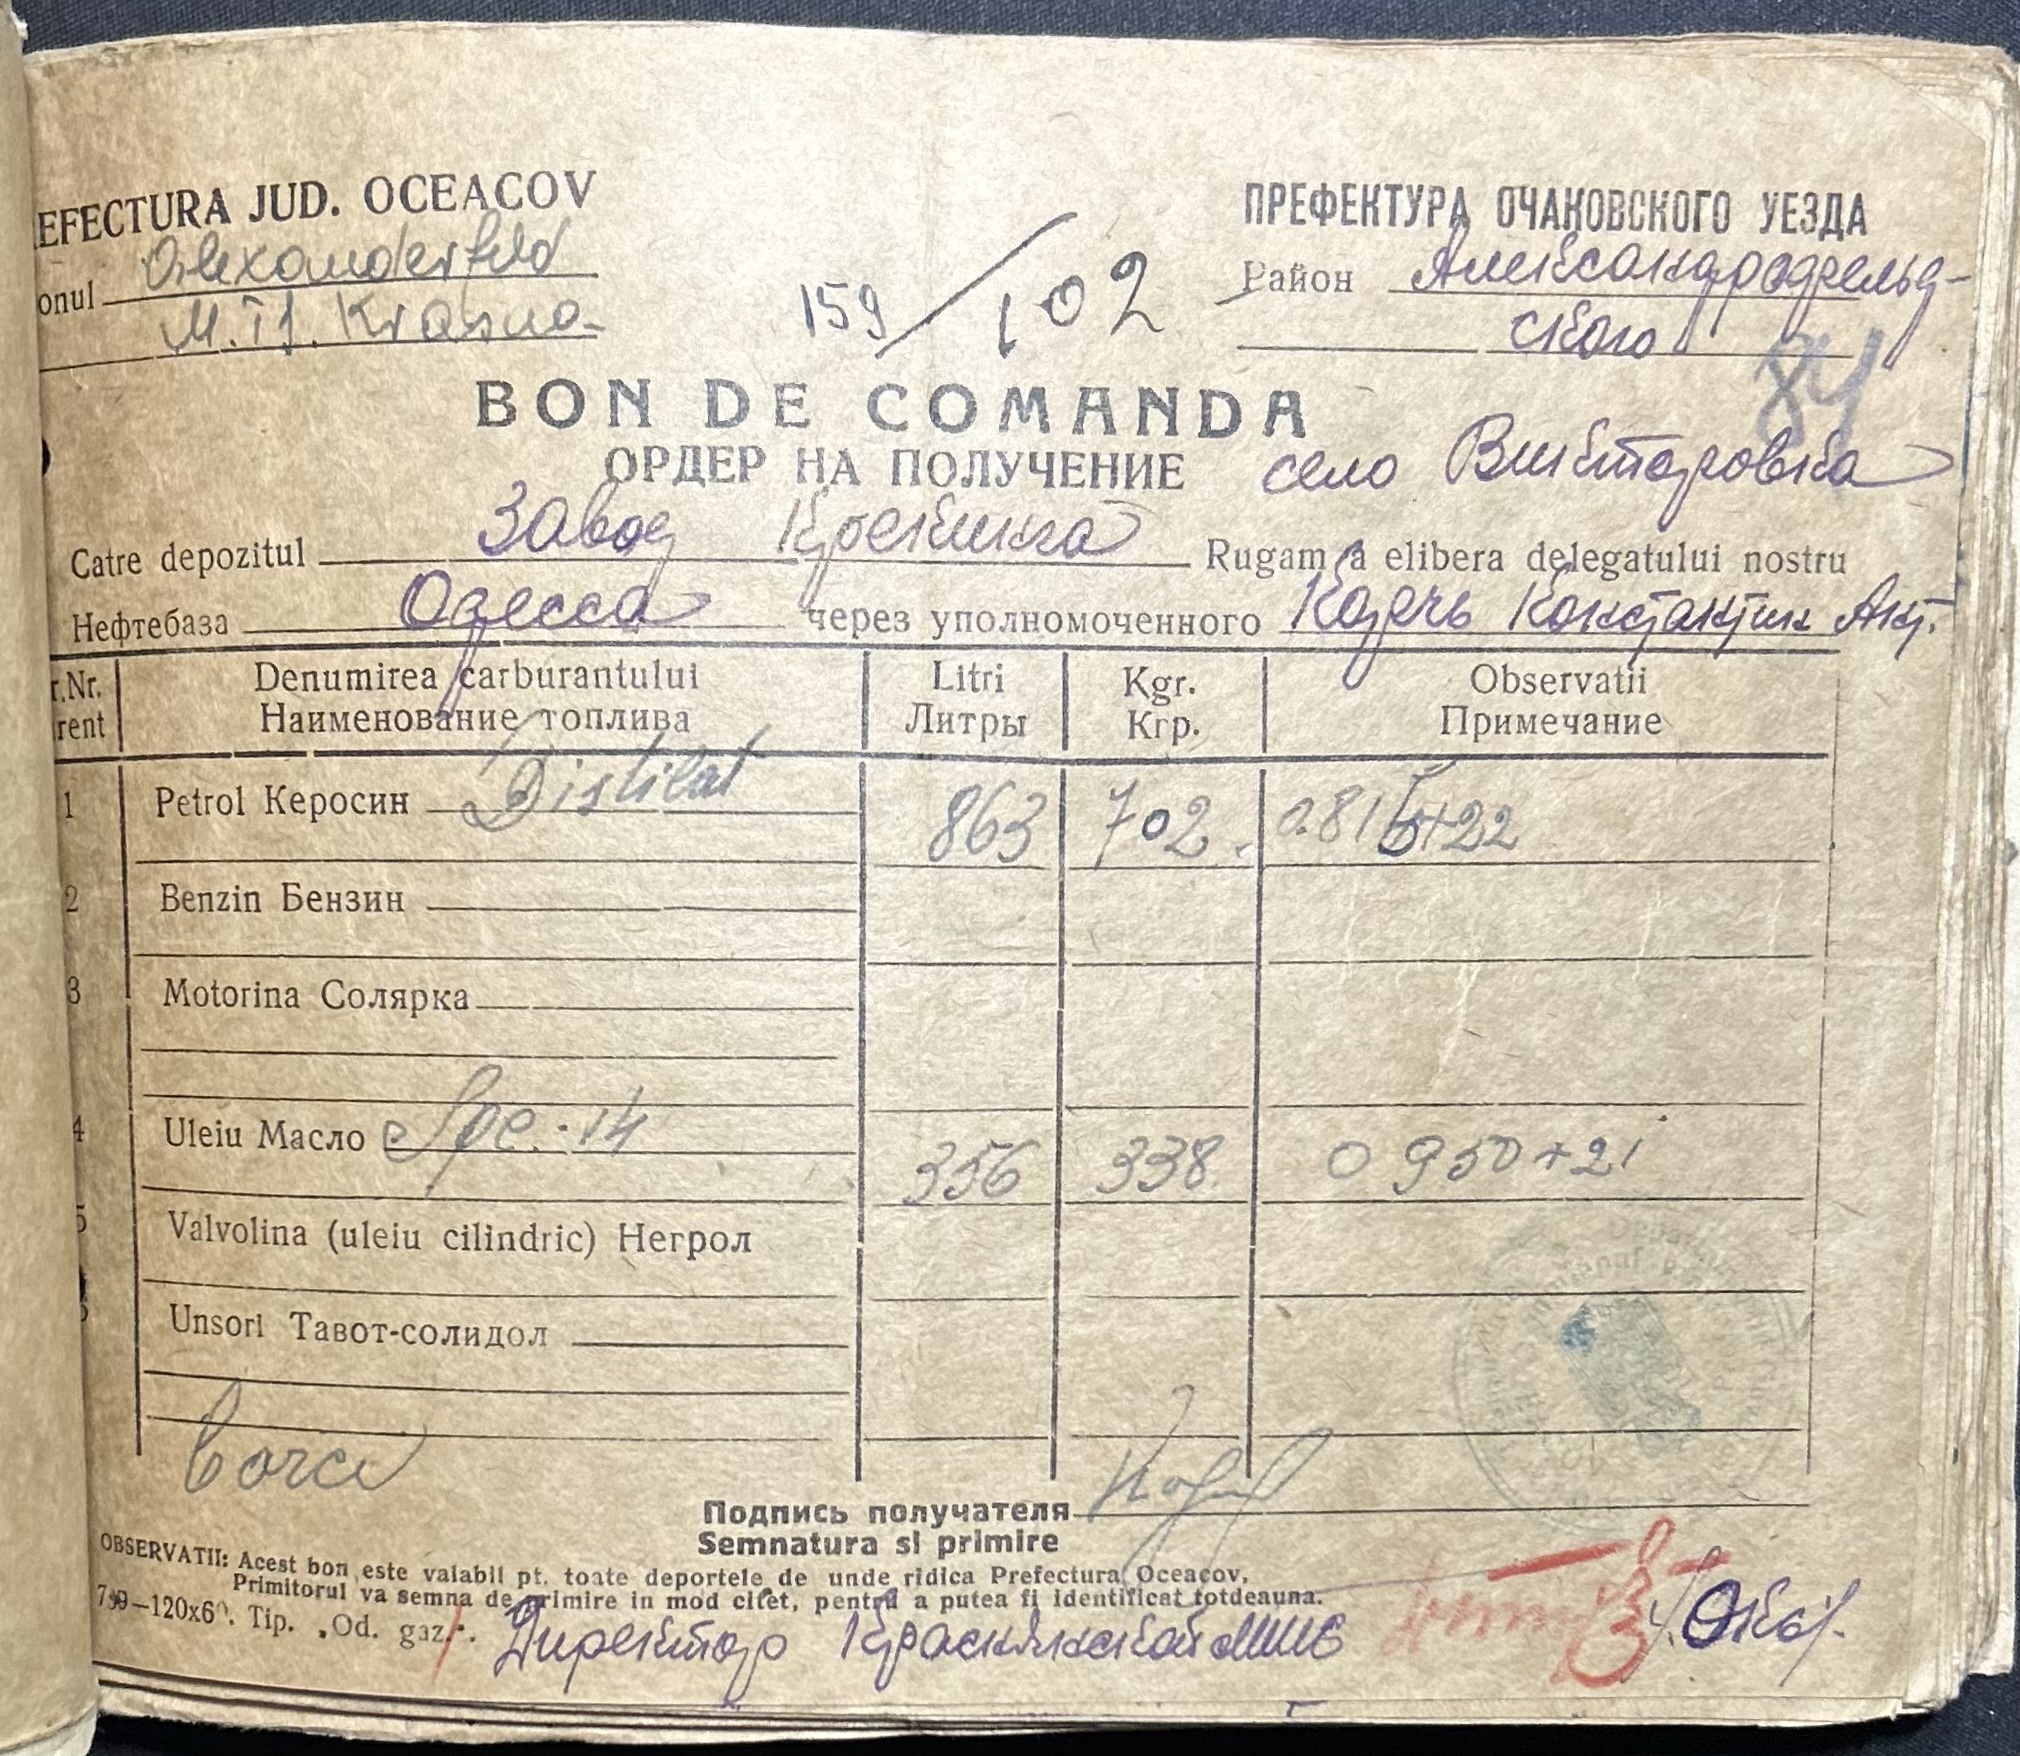 EFECTURA JUD. OCEACOV
ПРЕФЕКТУРА ОЧАКОВСКОГО УЕЗДА
onul Alexanderfeld
Район Александрофельд-
M.T.S. Krasno-
159/102
ского
84
BON DE COMANDA
ОРДЕР НА ПОЛУЧЕНИЕ село Викторовка
Catre depozitul Завод Rugam a elibera delegatului nostru
Нефтебаза Одесса через уполномоченного Константин Ант.
r.Nr. Denumirea carburantului Litri Kgr. Observatii
rent Наименование топлива Литры Кгр. Примечание
1 Petrol Керосин Distilat 863 702 0.815+22
2 Benzin Бензин
3 Motorina Солярка
4 Uleiu Масло Spe.-14 356 338 0 950+21
5 Valvolina (uleiu cilindric) Негрол
Unsori Тавот-солидол
Подпись получателя
Semnatura si primire
OBSERVATII: Acest bon este valabil pt. toate deportele de unde ridica Prefectura Oceacov.
Primitorul va semna de primire in mod citet, pentru a putea fi identificat totdeauna.
799—120x60. Tip. „Od. gaz.".
Директор Краснянской МТС